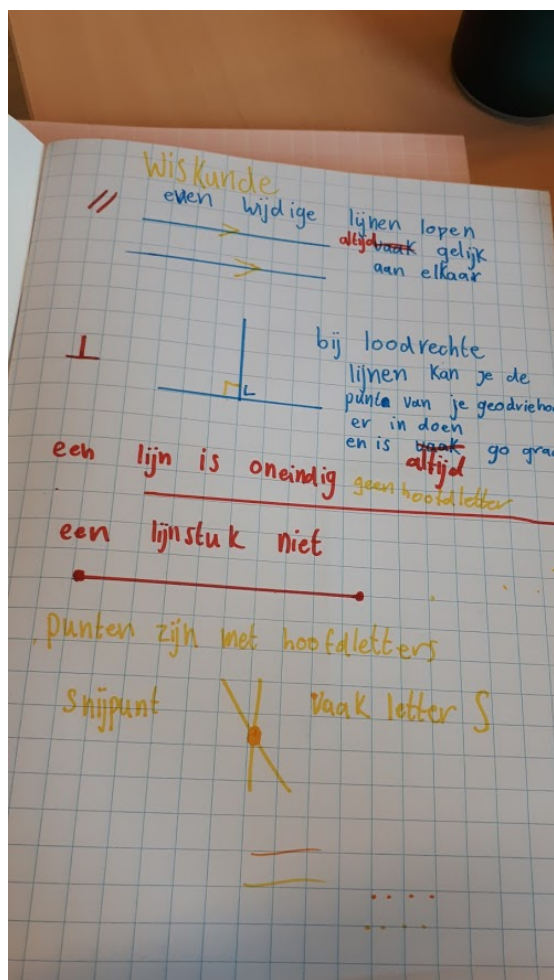 Wiskunde
// even wijdige lijnen lopen
altijd vaak gelijk
aan elkaar
⊥ bij loodrechte
lijnen kan je de
punt van je geodrieho
er in doen
en is vaak 90 grad
altijd
een lijn is oneindig geen hoofdletter
een lijnstuk niet
punten zijn met hoofdletters
snijpunt vaak letter S